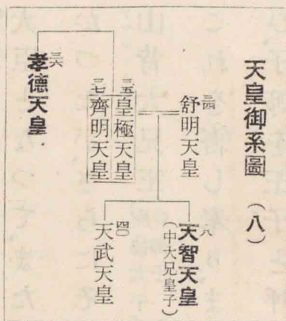 天皇御系圖（八）
三四
舒明天皇
三五
皇極天皇
三七
齊明天皇
三六
孝德天皇
八
天智天皇
（中大兄皇子）
四〇
天武天皇